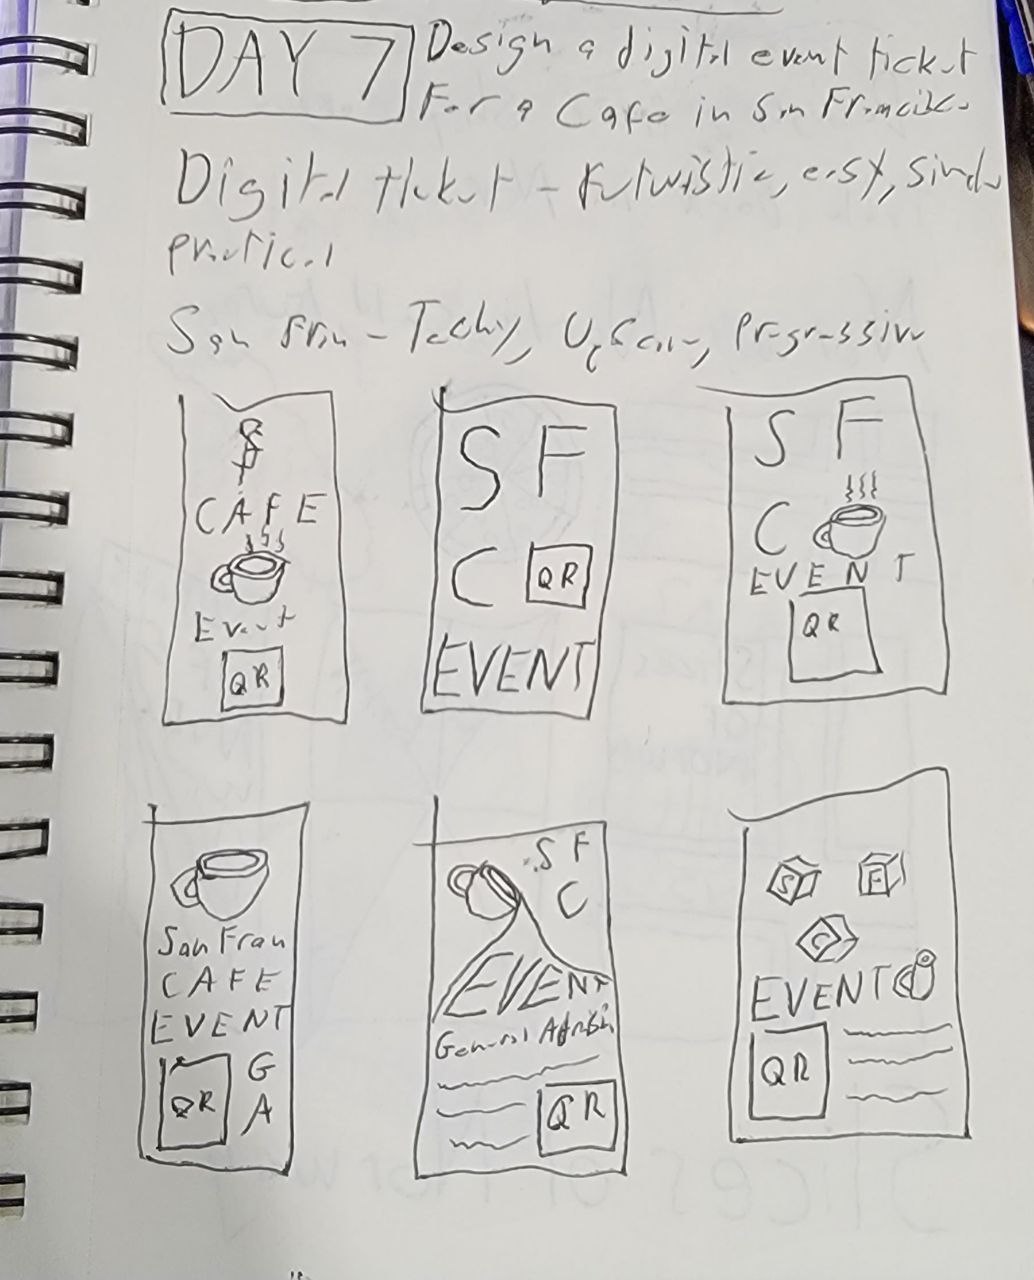 DAY 7
Design a digital event ticket
For a Cafe in San Francisco
Digital ticket - futuristic, easy, simple
practical
San Fran - Techy, Upscale, Progressive
SF
CAFE
Event
QR
SF
C QR
EVENT
SF
C
EVENT
QR
San Fran
CAFE
EVENT
QR GA
SF
C
EVENT
General Admission
QR
S F
C
EVENT
QR